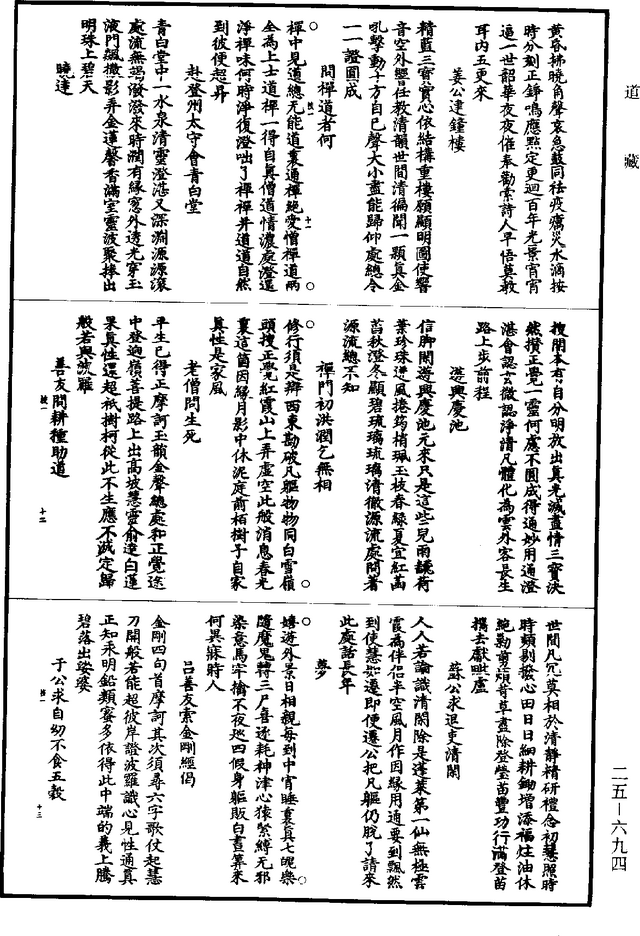 道藏
黃昏拂曉角聲哀急鼓同祛疫癘災水滴按
時分刻正錚鳴應點定更迴百年光景宵宵
逼一世韶華夜夜催奉勸索詩人早悟莫教
耳內五更來
姜公建鐘樓
精藍三寶實心依結構重樓願顯明圖使響
音空外響任教清韻世間清徧聞一顆真金
吼擊動十方自已聲大小盡能歸仰處總令
一一證圓成
問禪道者何
禪中見道總无能道裏通禪絕愛憎禪道兩
全為上士道禪一得自真僧道情濃處澄還
淨禪味何時淨復澄咄了禪禪并道道自然
到彼便超昇
赴登州太守會青白堂
青白堂中一水泉清靈澄湛又深淵源源滾
處流無竭潑潑來時潤有緣窓外透光穿玉
液門飆撒影弄金蓮馨香滿室靈波聚捧出
明珠上碧天
曉達
搜聞本有自分明放出真光滅盡情三寶決
然攢正覺一靈何慮不圓成得通妙用通澄
湛會認玄微認淨清凡體化為雲外客長生
路上步前程
遊興慶池
信腳閑遊興慶池元來只是這些兒雨籭荷
葉珍珠迸風捲筠梢珮玉枝春綠夏宜紅菡
萏秋澄冬顯碧琉璃琉璃清徹源流處問著
源流總不知
禪門初洪潤乞無相
修行須是辯西東勘破凡軀物物同白雪嶺
頭搜正覺紅霞山上弄虛空此般消息春光
裏這箇因緣月影中休泥庭前栢樹子自家
真性是家風
老僧問生死
平生已得正摩訶玉韻金聲總處和正覺途
中登逈嶺菩提路上出高坡慧靈俞達白蓮
果真性還超祇樹柯從此不生應不滅定歸
般若與娑羅
善友問耕種助道
世間凡冗莫相於清靜精研禮念初慧照時
時頻剔撥心田日日細耕鋤增添福炷油休
絕勤剪煩苛草盡除登瑩苗豐功行滿登苗
攜去獻毗盧
蘇公求退吏清閑
人人若論識清閑除是蓬萊第一仙無極雲
霞為伴侶半空風月作因緣用通要到飄然
到使慧如遷即便遷公把凡軀仍脫了請來
此處話長年
夢
嬉遊外景日相親每到中宵睡裏真七魄樂
隨魔鬼轉三尸喜逐耗神津心猿緊縛无邪
染意馬牢擒不夜巡四假身軀販白晝算來
何異寐時人
呂善友索金剛經偈
金剛四句首摩訶其次須尋六字歌仗起慧
刀開般若能超彼岸證波羅識心見性通真
正知汞明鉛類蜜多依得此中端的義上騰
碧落出娑婆
于公求自幼不食五穀
二五—六九四